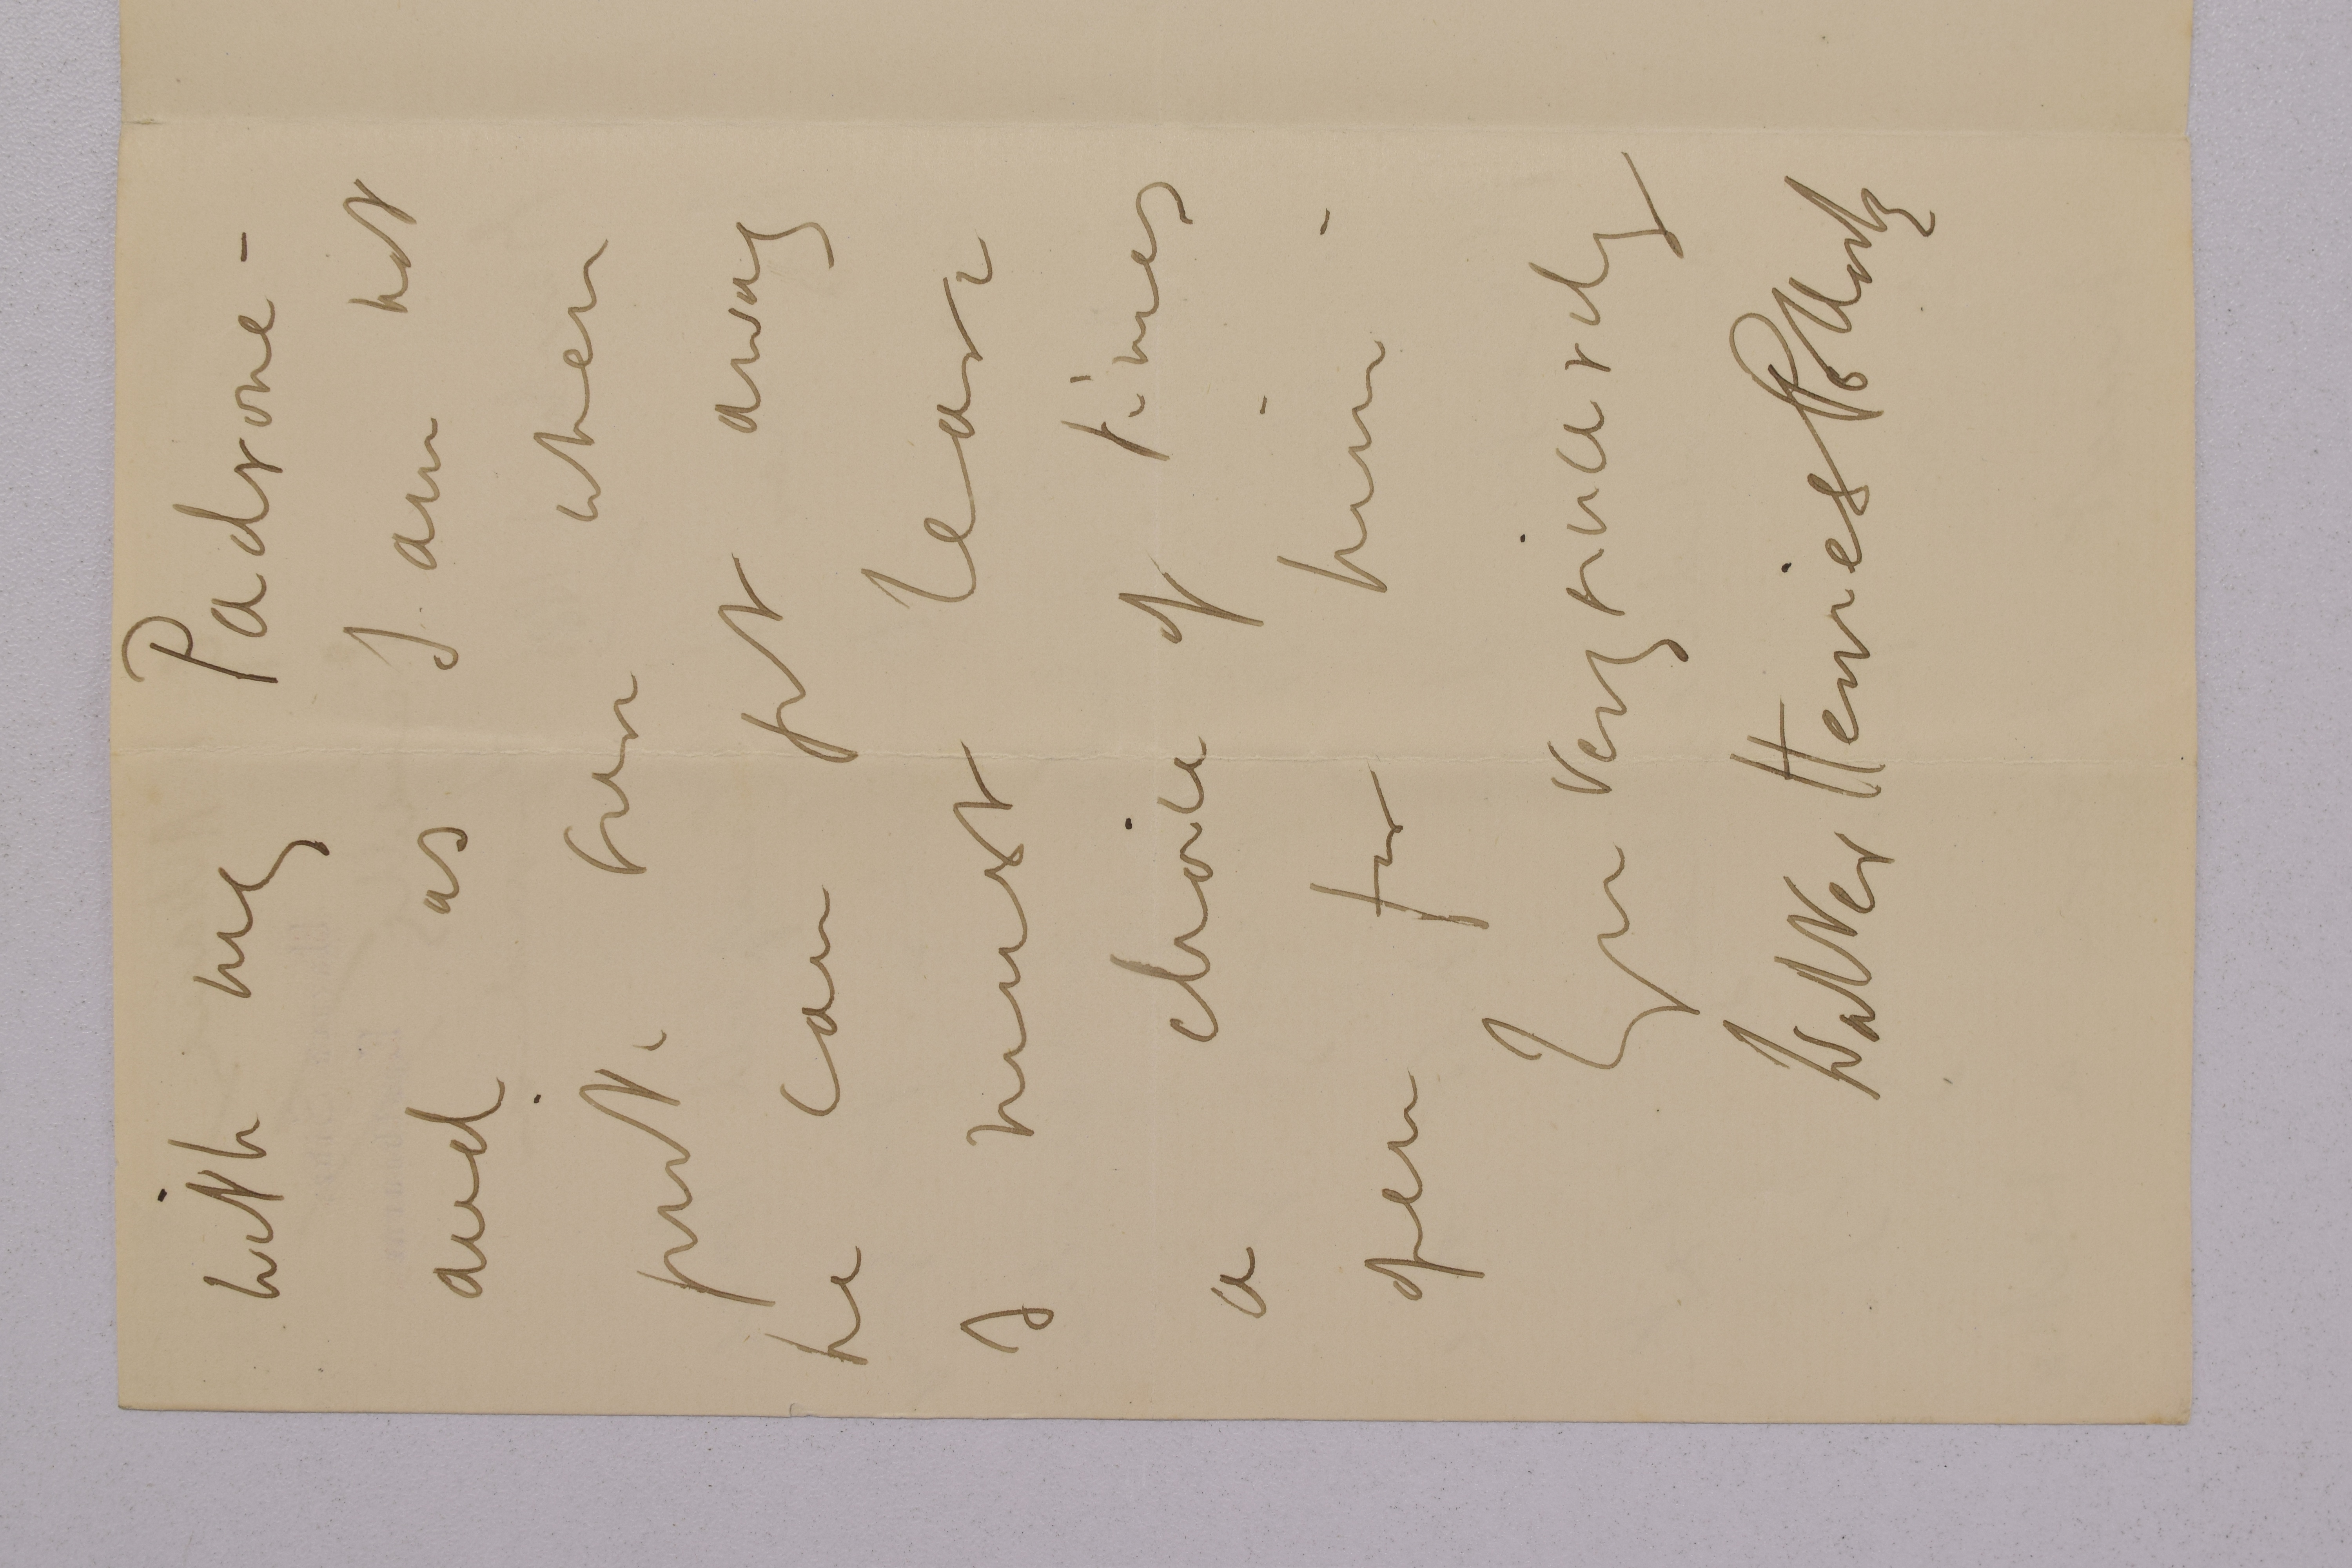 with my Padrone -
and as I am not
quite sure when
he can get away
I must leave
a choice of times
open for him -
Yrs very sincerely
Walter Herries Pollock